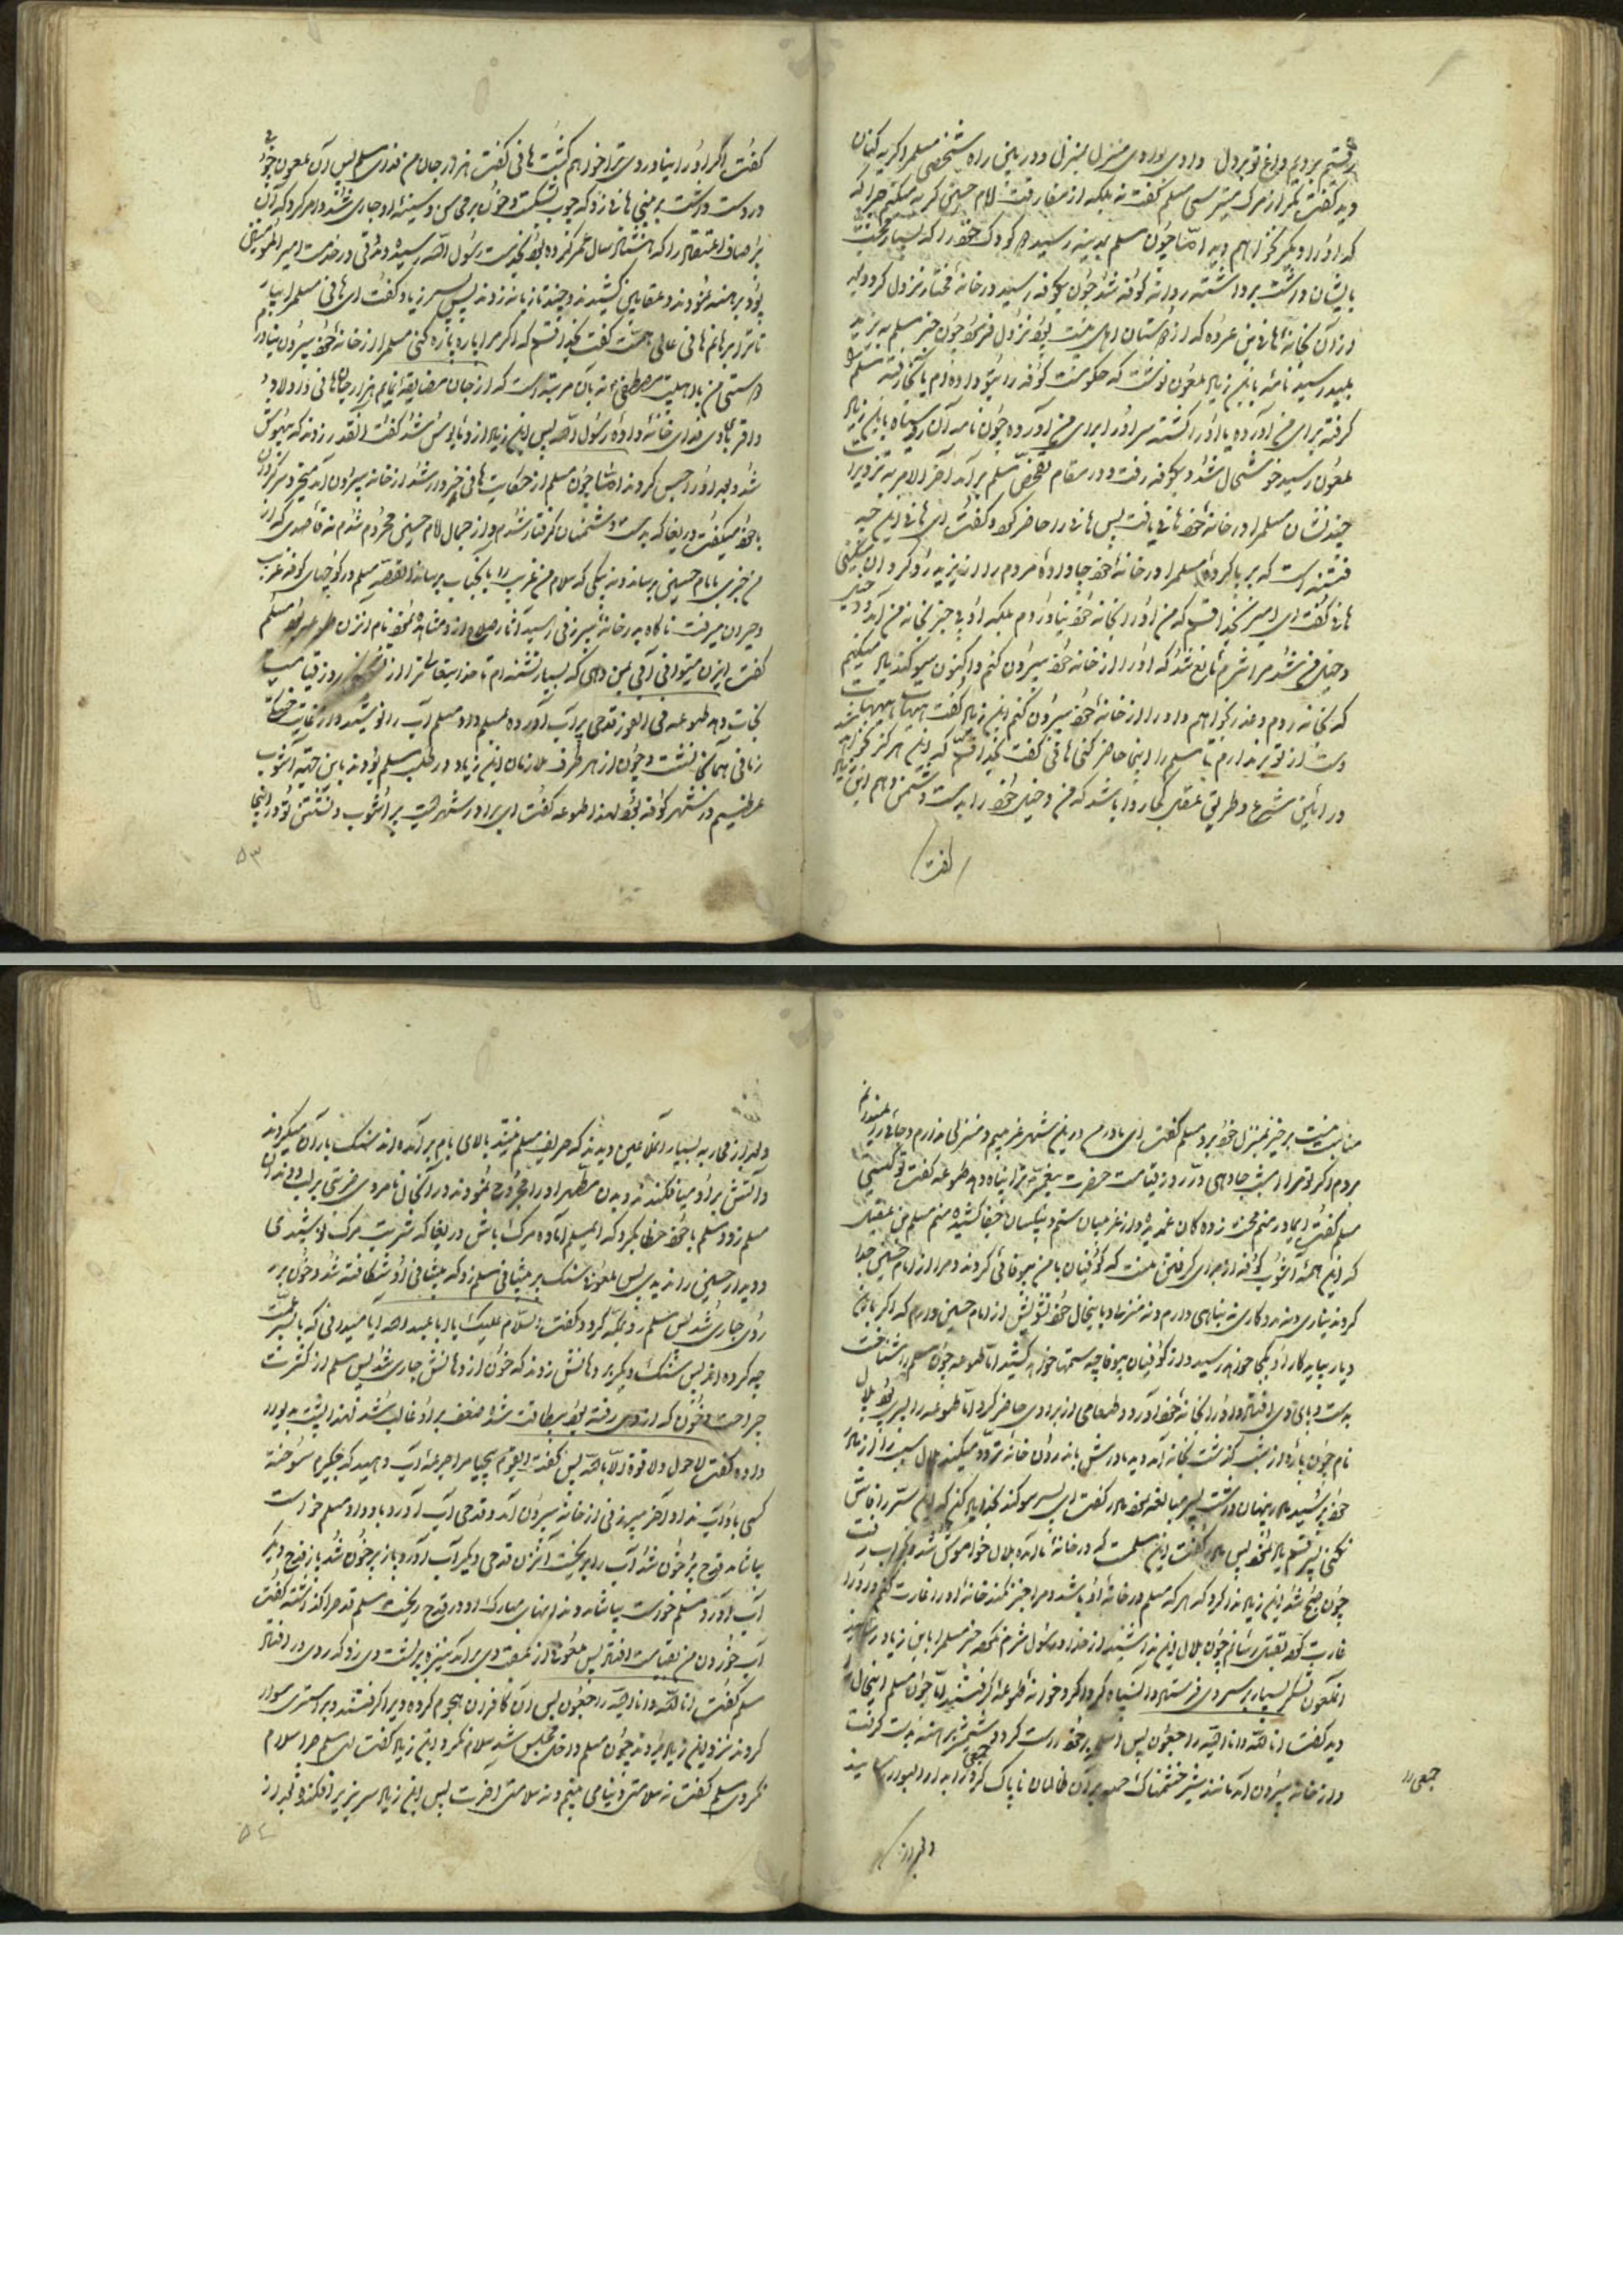 برفتیم بردیم و داغ تو بر دل دادی بوادی منزل بمنزل و در این راه شخصی مسلم را گریه کنان
دید گفت مگر از مرگ میترسی مسلم گفت نه بلکه از مفارقت امام حسین گریه میکنم چرا که
که او را دیگر نخواهم دید امّا چون مسلم بمدینه رسید دو کودک خود را که بسیار محبت
بایشان داشت برداشته روانه کوفه شد چون بکوفه رسید در خانه مختار نزول کرد و بعد
از آن بخانه هانی بن عروه که از دوستان اهل بیت بود نزول فرمود چون خبر مسلم به یزید
پلید رسید نامه بابن زیاد ملعون نوشت که حکومت کوفه را بتو داده‌ام باید که رفته مسلم را
گرفته برای من آورده یا او را کشته سر او را برای من آورده چون نامه آن روسیاه بابن زیاد
ملعون رسید خوشحال شد و بکوفه رفت و در مقام تفحّص مسلم برآمد آخر الامر به تزویر
چند نشان مسلم را در خانه هانی یافت پس هانی را حاضر کرد و گفت ای هانی این چه
فتنه است که بر پا کرده مسلم را در خانه خود جا داده مردم را از یزید رو گردان میکنی
هانی گفت ای امیر بخدا قسم که من او را بخانه خود نیاوردم بلکه او بی خبر بخانه من آمد و
دخیل من شد مرا شرم مانع شد که او را از خانه خود بیرون کنم و اکنون سوگند یاد میکنم
که بخانه روم و عذر بخواهم و او را از خانه خود بیرون کنم ابن زیاد گفت هیهات هیهات
دست از تو بر ندارم تا مسلم را اینجا حاضر کنی هانی گفت بخدا قسم که این هرگز نخواهد شد
در آئین شرع و طریق عقل کجا روا باشد که من دخیل خود را بدست دشمن دهم ابن زیاد
گفت
گفت اگر او را نیاوردی ترا خواهم کشت هانی گفت هزار جان من فدای مسلم پس آن ملعون چوبی
در دست داشت بر بینی هانی زد که چوب شکست و خون بر محاسن و سینه او جاری شد و امر کرد که آن
پیر صاف اعتقاد را که هشتاد سال عمر کرده بود بخدمت رسول الله رسیده و مدّتی در خدمت امیر المؤمنین
بود برهنه نمودند و عقابین کشیدند و چند تازیانه زدند پس پسر زیاد گفت ای هانی مسلم را بیار
تا ترا برهانم هانی عالی همّت گفت بخدا قسم که اگر مرا پاره پاره کنی مسلم را از خانه خود بیرون نیاورم
دوستی من باهلبیت مصطفی نه بآن مرتبه است که از جان مضایقه نمایم هزار جان هانی و اولاد
و اقربای وی فدای خانواده رسول الله پس ابن زیاد از او مأیوس شد گفت آنقدر زدند که بیهوش
شد و بعد او را حبس کردند امّا چون مسلم از حکایت هانی خبردار شد از خانه بیرون آمد متحیر و سرگردان
با خود میگفت دریغا که بدست دشمنان گرفتار شدم و از جمال امام حسین محروم شدم نه قاصدی که از
من خبری بامام حسین برساند و نه پیکی که سلام من غریب را بآنجناب برساند القصّه مسلم در کوچهای کوفه غریب
و حیران میرفت ناگاه بدر خانه پیرزنی رسید آثار صلاح از او مشاهده نمود نام آن زن طوعه بود مسلم
گفت ای زن میتوانی آبی بمن دهی که بسیار تشنه‌ام تا خدایتعالی ترا از تشنگی روز قیامت
نجات دهد طوعه فی الفور قدحی پر آب آورده بمسلم داد مسلم آب را نوشید و از غایت خستگی
زمانی همانجا نشست و چون از هر طرف ملازمان ابن زیاد در طلب مسلم بودند باین جهة آشوب
عظیم در شهر کوفه بود لهذا طوعه گفت ای برادر شهریست پر آشوب و نشستن تو در اینجا
۵۳
مناسب نیست برخیز بمنزل خود برو مسلم گفت ای مادر من در این شهر غریبم و منزلی ندارم و جائی را نمیدانم
بروم اگر تو مرا امشب جا دهی در روز قیامت حضرت پیغمبر ترا پناه دهد طوعه گفت تو کیستی
مسلم گفت ای مادر منم محنت زده کان غم دیده و از غریبان ستم و بیکسان جفا کشیده منم مسلم بن عقیل
که این همه آشوب کوفه از برای گرفتن منست که کوفیان با من بیوفائی کردند و مرا از امام حسین جدا
کردند نه یاری و نه مددکاری نه پناهی دارم و نه منزل و باینحال خود تشویش از امام حسین دارم که اگر باین
دیار بیاید کار او بکجا خواهد رسید و از کوفیان بیوفا چه ستمها خواهد کشید امّا طوعه چون مسلم را شناخت
بدست و پای وی افتاد و او را بخانه خود آورد و طعامی از برای وی حاضر کرد امّا طوعه را پسری بود بلال
نام چون پاره از شب گذشت بخانه آمد دید مادرش باندرون خانه تردّد میکند بلال سبب را از مادر
خود پرسید مادر پنهان داشت پسر مبالغه نمود مادر گفت ای پسر سوگند بخدا یاد کن که این سرّ را فاش
نکنی پسر قسم یاد نمود پس مادر گفت این مسلم است که در خانه ما آمده بلال خاموش شد و بخواب رفت
چون صبح شد ابن زیاد ندا کرد که هر که مسلم در خانه او باشد و مرا خبر نکند خانه او را غارت کنم و او را
غارت کرده بقتل رسانم چون بلال این ندا شنید از خدا و رسول شرم نکرده خبر مسلم را بابن زیاد رسانید
آنملعون لشکر بسیار بر سر وی فرستاد و آنسپاه گرداگرد خانه طوعه را گرفتند امّا چون مسلم اینحال را
دید گفت انا لله و انا الیه راجعون پس اسلحه بر خود راست کرد و شمشیر برهنه بدست گرفت
و از خانه بیرون آمد مانند شیر خشمناک حمله بر آن ظالمان ناپاک کرد و جمعی را به دار البوار رسانید
جمعی را
و بعد از
و بعد از محاربه بسیار آنملاعین دیدند که حریف مسلم نیستند بالای بام بر آمده‌اند سنگ باران میکردند
و آتش بر او میافکندند و بدن مطهر او را مجروح نمودند در آنحال نامردی ضربتی بر لب و دندان
مسلم زد و مسلم با خود خطاب کرد که ای مسلم آماده مرگ باش دریغا که شربت مرگ نوشیدی
و دیدار حسین را ندیدی پس ملعونی سنگ بر پیشانی مسلم زد که پیشانی او شکافته شد و خون بر
روی جاری شد پس مسلم رو بمکّه کرد و گفت السّلام علیک یا ابا عبد الله آیا میدانی که با پسر عمّت
چه کرده‌اند پس سنگ دیگر بر دهانش زدند که خون از دهانش جاری شد پس مسلم از کثرت
جراحت و خون که از وی رفته بود بیطاقت شد و ضعف بر او غالب شد لهذا پشت به دیوار
داده گفت لاحول ولا قوة الا بالله پس گفت ای قوم بیحیا مرا جرعه آب دهید که جگرم سوخته
کسی باو آب نداد آخر پیرزنی از خانه بیرون آمد و قدحی آب آورد باو داد مسلم خواست
بیاشامد قدح پر خون شد آب را بریخت آنزن قدحی دیگر آب آورد باز پر خون شد باز قدح دیگر
آب آورد مسلم خواست بیاشامد دندانهای مبارک او در قدح ریخت مسلم قدح را گذاشته گفت
آب خوردن من بقیامت افتاد پس ملعونی از عقب وی بر آمد نیزه بر پشت وی زد که بروی در افتاد
مسلم گفت انا لله و انا الیه راجعون پس آن کافران هجوم کرده ویرا گرفتند و بر استری سوار
کردند نزد ابن زیاد بردند چون مسلم داخل مجلس شد سلام نکرد ابن زیاد گفت ای مسلم چرا سلام
نکردی مسلم گفت نه سلامتی دنیا می بینم و نه سلامتی آخرت پس ابن زیاد سر بزیر افکند و بعد از
۵۴